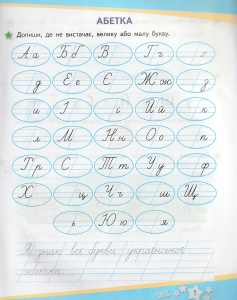 АБЕТКА
Допиши, де не вистачає, велику або малу букву.
А а Б б В Г г г
д Е є Є Ж ж з
и І і Й й к
л М Н н О о п
Г р С Т т У у ф
Х ц Ч ч ш Щ
ь Ю ю я
Я знаю всі букви української
абетки.